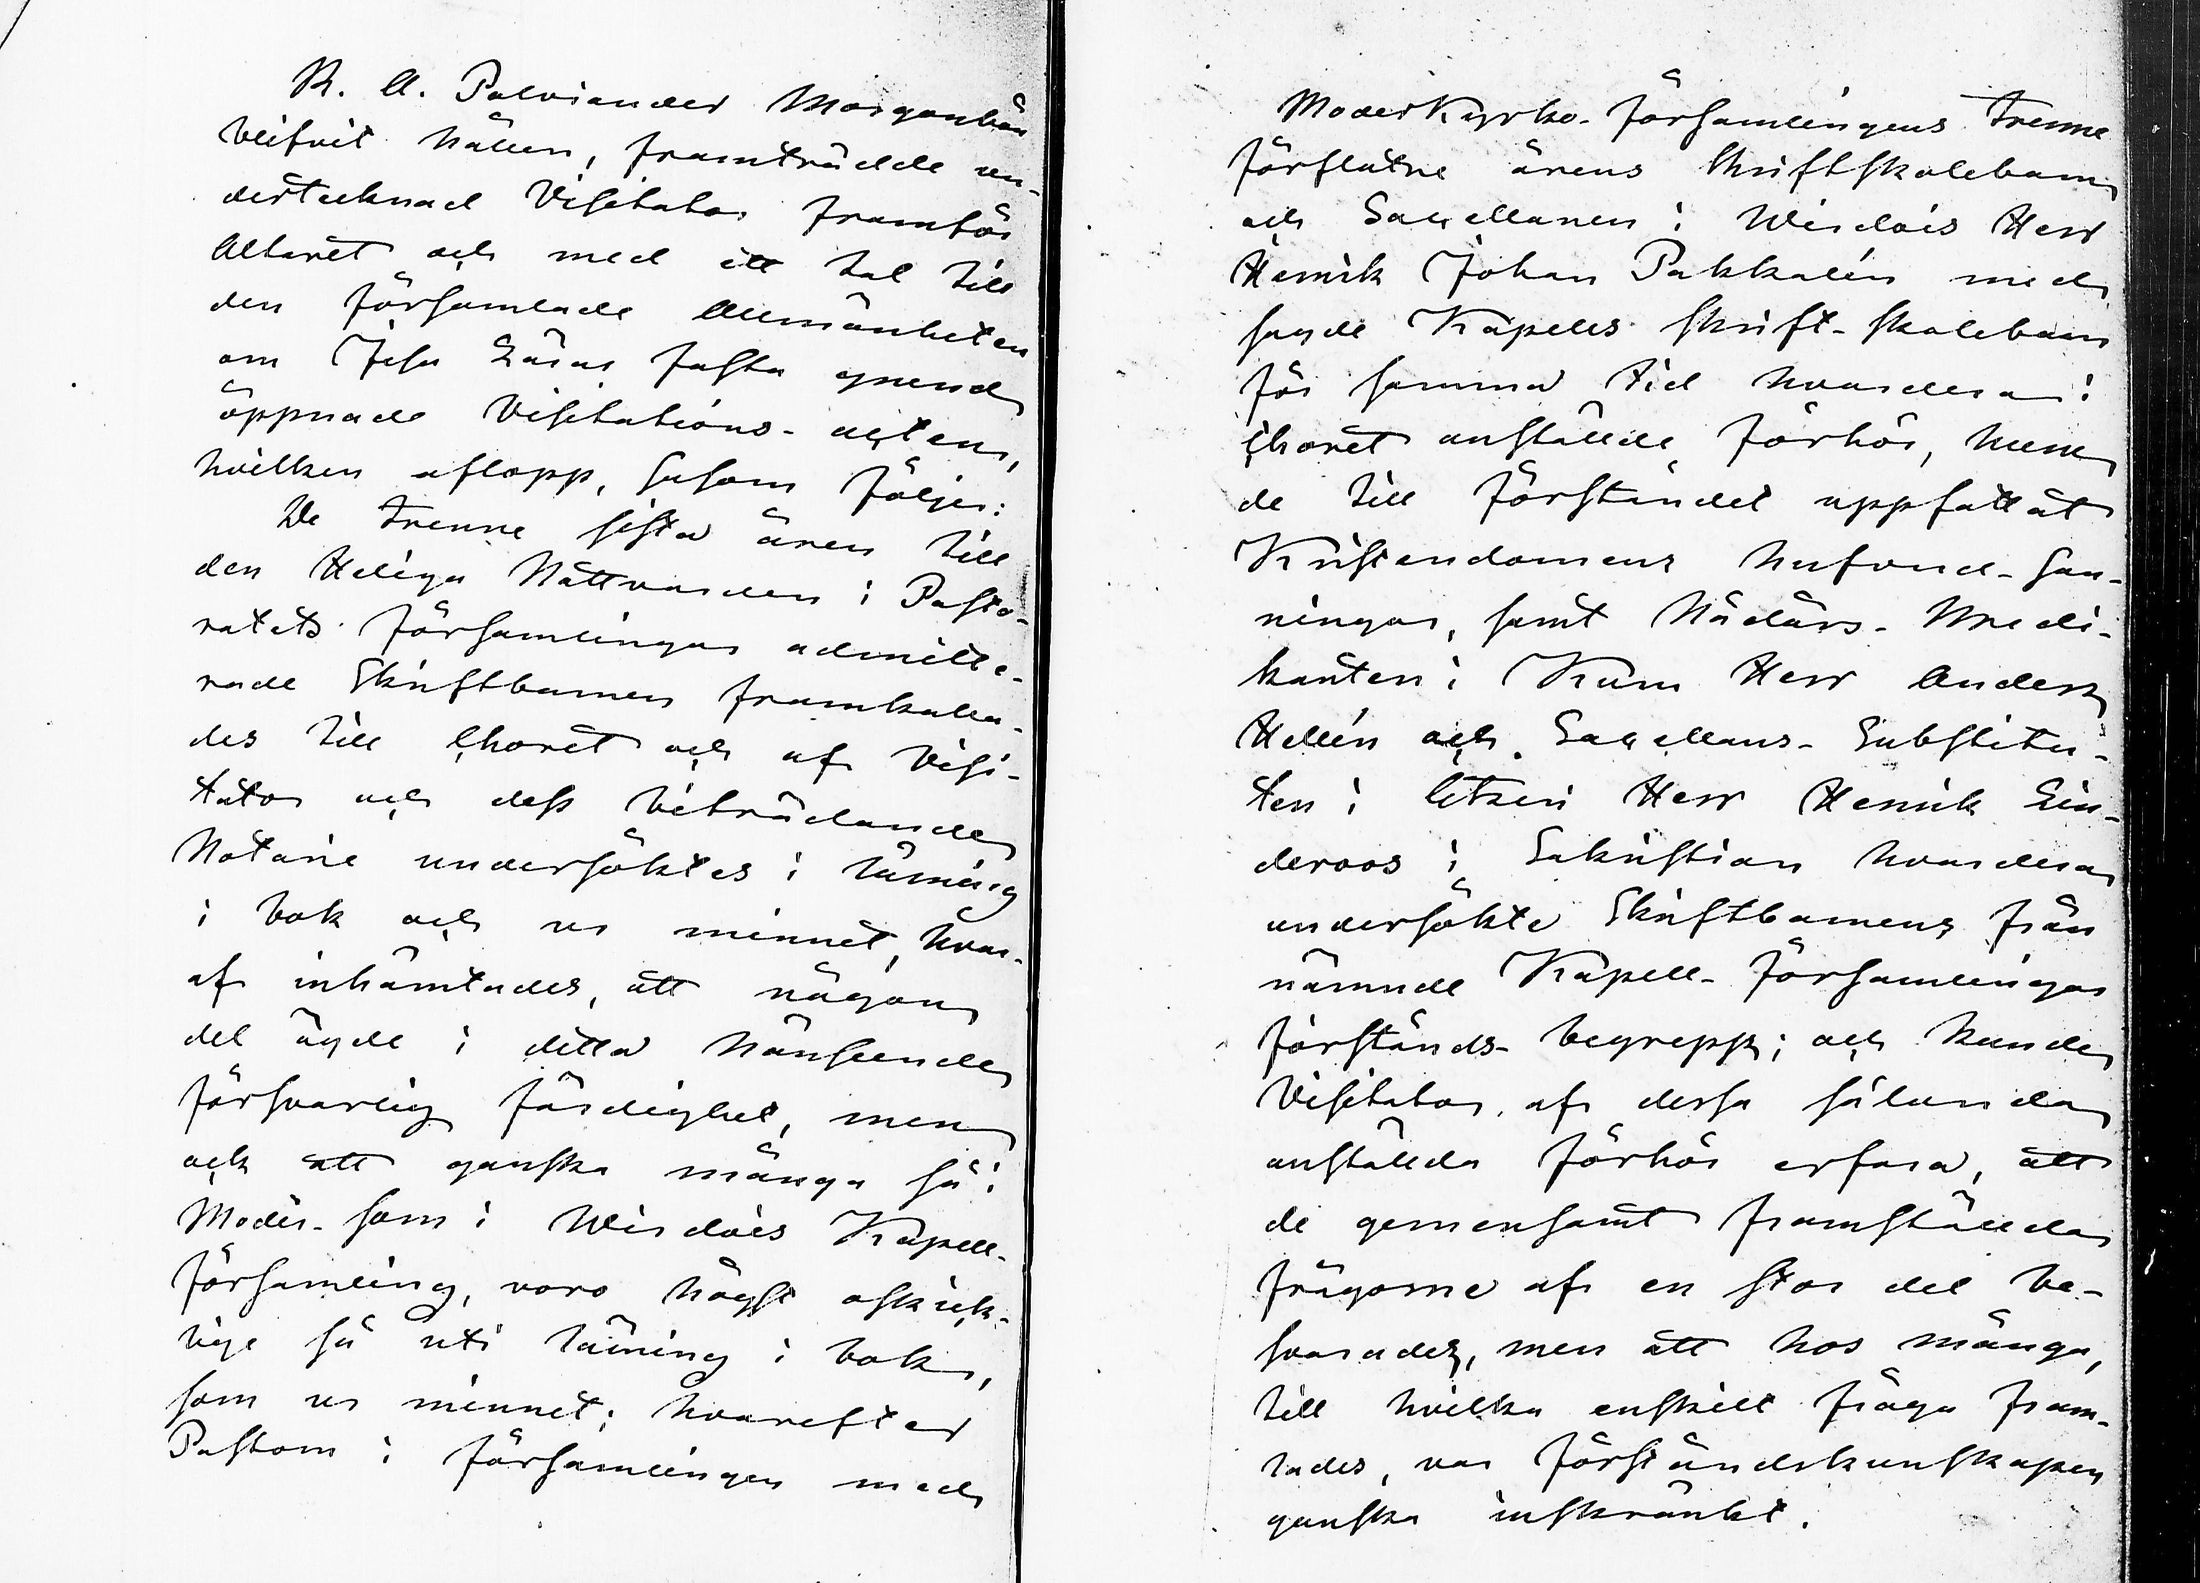 R. A. Palviander Morgonbön
blifvit hållen, framträdde un-
dertecknad Visitator framför
Altaret och med ett tal till
den församlade Allmänheten
om Jesu Läras fasta grund
öppnade Visitations-acten,
hvilken aflopp, såsom följer:
De trenne sista åren till
den Heliga Nattvarden i Pasto-
ratets församlingar admitte-
rade Skriftbarnen framkalla-
des till Choret och af Visi-
tator och dess biträdande
Notarie undersöktes i läsning
i bok och ur minnet, hvar-
af inhämtades, att någon
del ägde i detta hänseende
försvarlig färdighet, men
ock att ganska många så i
Moder- som i Wirdois Kapell-
församling, voro högst oskick-
lige så uti läsning i bok,
som ur minnet; hvarefter
Pastorn i församlingen med
Moderkyrko-församlingens trenne
förflutne årens Skriftskolebarn
och Sacellanen i Wirdois Herr
Henrik Johan Pakkalén med
sagde Kapells skrift-skolebarn
för samma tid hvardera i
Choret anstälde förhör, huru
de till förståndet uppfattat
Kristendomens hufvud-san-
ningar, samt Nådårs-Predi-
kanten i Kuru Herr Anders
Hellén och Sacellans-Substitu-
ten i Etseri Herr Henrik Lin-
deroos i Sakristian hvardera
undersökte Skriftbarnens från
nämnde Kapell-församlingar
förstånds-begrepp; och kunde
Visitator af dessa sålunda
anställda förhör erfara, att
de gemensamt framställda
frågorne af en stor del be-
svarades, men att hos många,
till hvilka enskilt fråga fram-
tades, var förståndskunskapen
ganska inskränkt.